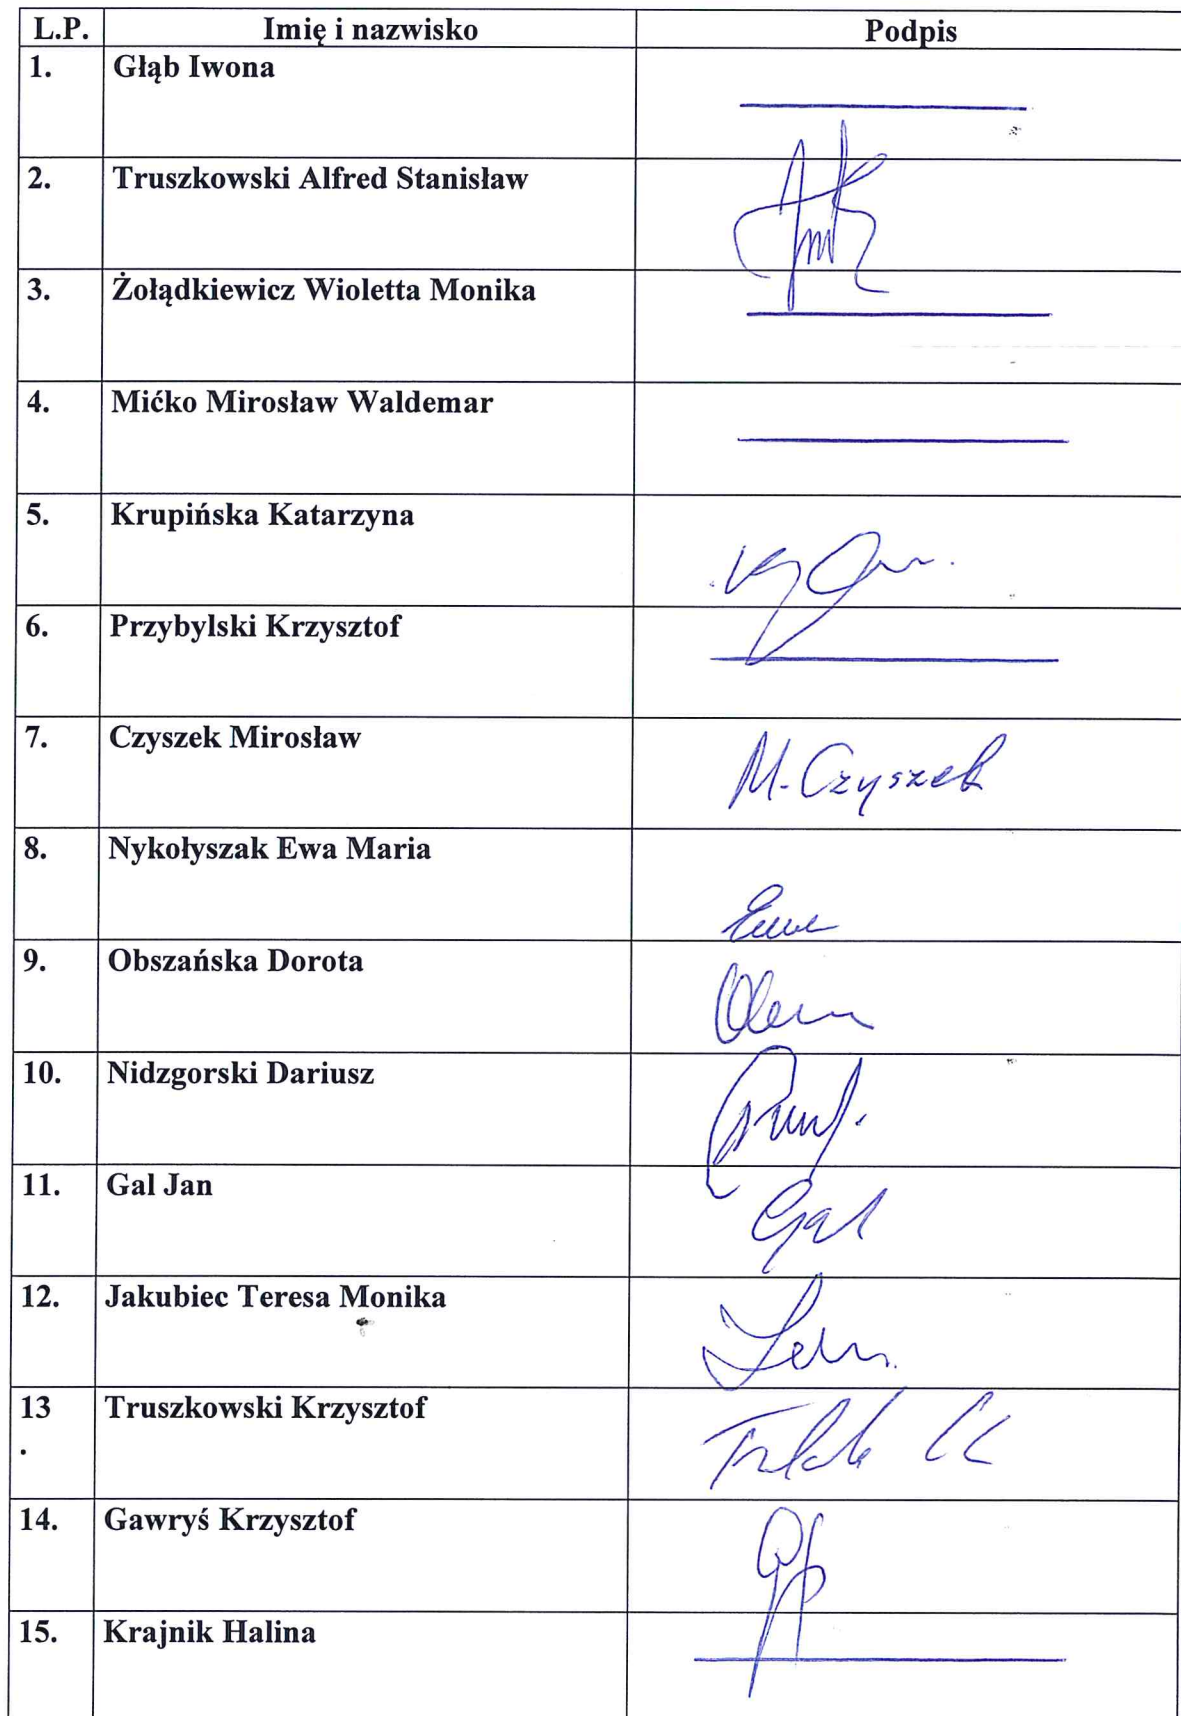 L.P. Imię i nazwisko Podpis
1. Głąb Iwona
2. Truszkowski Alfred Stanisław
3. Żołądkiewicz Wioletta Monika
4. Mićko Mirosław Waldemar
5. Krupińska Katarzyna
6. Przybylski Krzysztof
7. Czyszek Mirosław M. Czyszek
8. Nykołyszak Ewa Maria
9. Obszańska Dorota
10. Nidzgorski Dariusz
11. Gal Jan Gal
12. Jakubiec Teresa Monika
13 Truszkowski Krzysztof
.
14. Gawryś Krzysztof
15. Krajnik Halina